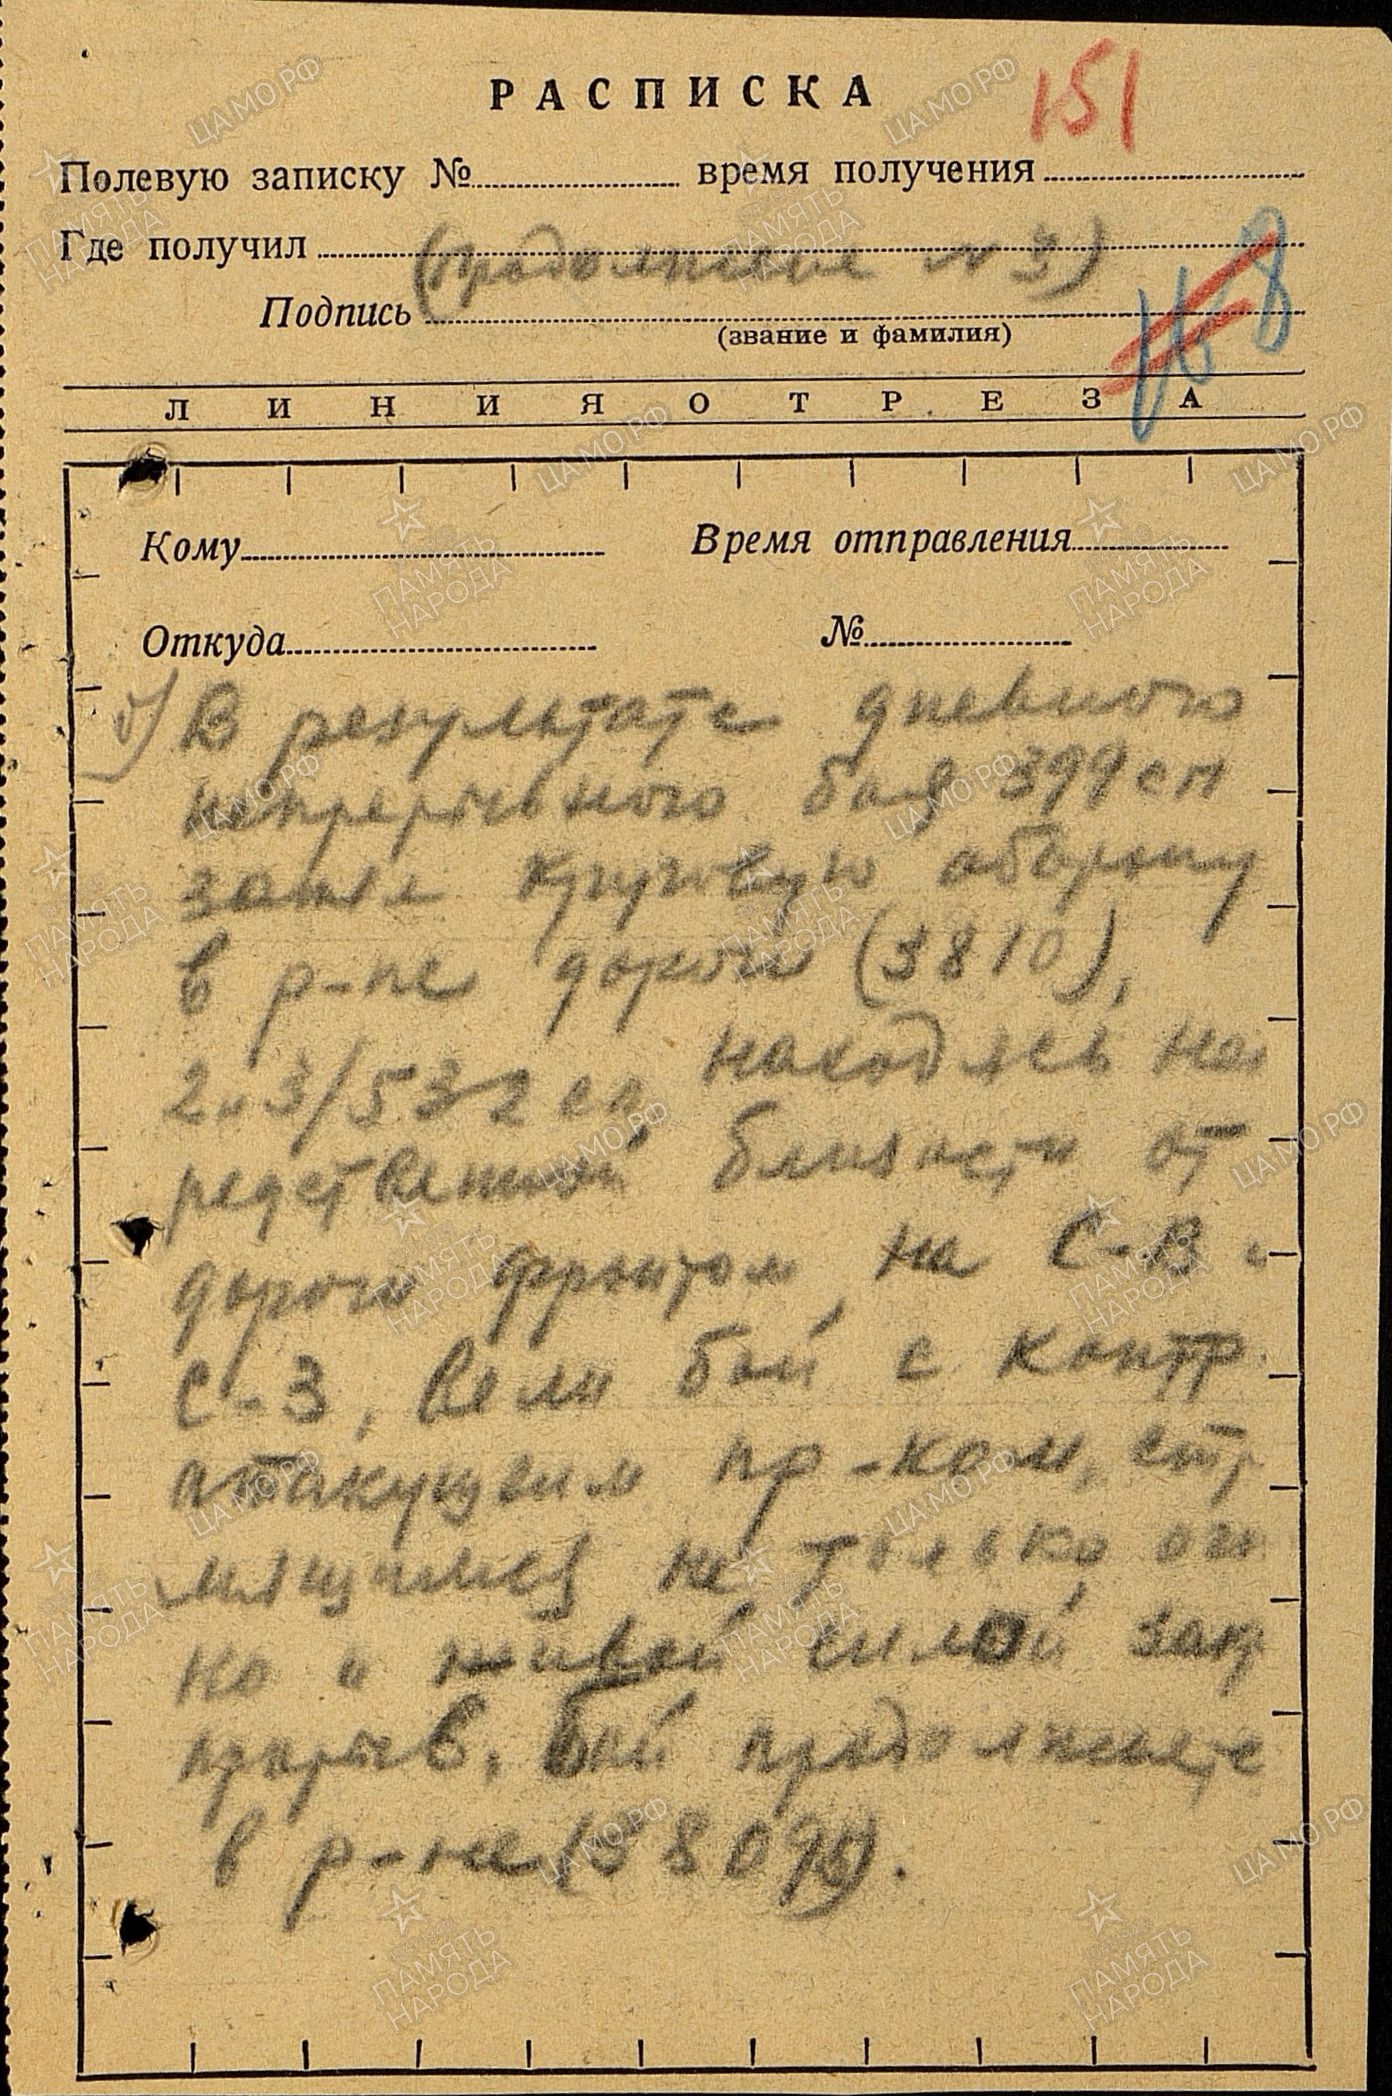 РАСПИСКА
151
Полевую записку № время получения
Где получил
(продолжение № 3)
Подпись
(звание и фамилия)
ЛИНИЯ ОТРЕЗА
Кому Время отправления
Откуда №
В результате дневного
непрерывного боя 399 сп
занял круговую оборону
в р-не дороги (3810),
2 и 3/532 сп, находясь
редственной близости от
дороги фронтом на С-В и
С-З, вели бой с контр
атакующим пр-ком, стр
мящимся не только ог
но и живой силой закр
прорыв. Бой продолжаетс
в р-не